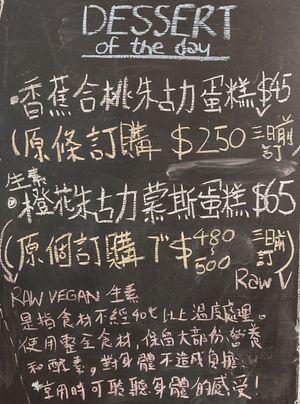 DESSERT
of the day
·香蕉合桃朱古力蛋糕 $45
(原條訂購 $250 三日前訂)
生素
·橙花朱古力慕斯蛋糕 $65
(原個訂購 7" $480 500 三日前訂)
Raw V
RAW VEGAN 生素
是指食材不經40℃以上溫度處理。
使用整全食材,保留大部份營養
和酵素,對身體不造成負擔。
享用時可聆聽身體的感受!